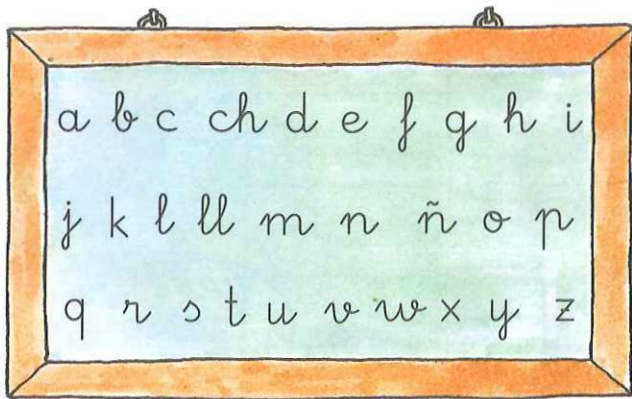 a b c ch d e f g h i
j k l ll m n ñ o p
q r s t u v w x y z